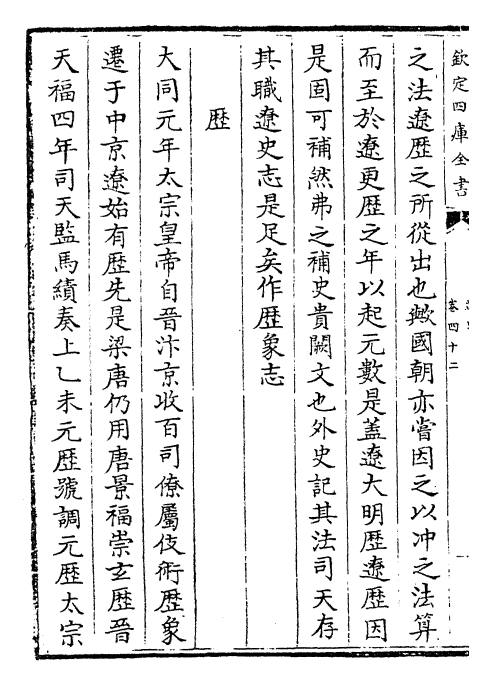 欽定四庫全書
卷四十二
之法遼歴之所從出也歟國朝亦嘗因之以冲之法算
而至於遼更歴之年以起元數是盖遼大明歴遼歴因
是固可補然弗之補史貴闕文也外史記其法司天存
其職遼史志是足矣作歴象志
歴
大同元年太宗皇帝自晉汴京收百司僚屬伎術歴象
遷于中京遼始有歴先是梁唐仍用唐景福崇玄歴晉
天福四年司天監馬績奏上乙未元歴號調元歴太宗